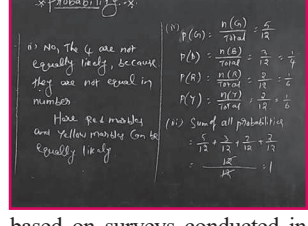 * Probability. *
ii) No, The 4 are not
equally likely, because
they are not equal in
number
Here Red marbles
and Yellow marbles Can be
equally likely
P(G) = n(G)/Total = 5/12
P(B) = n(B)/Total = 3/12 = 1/4
P(R) = n(R)/Total = 2/12 = 1/6
P(Y) = n(Y)/Total = 2/12 = 1/6
(iii) Sum of all probabilities
= 5/12 + 3/12 + 2/12 + 2/12
= 12/12 = 1
based on surveys conducted in